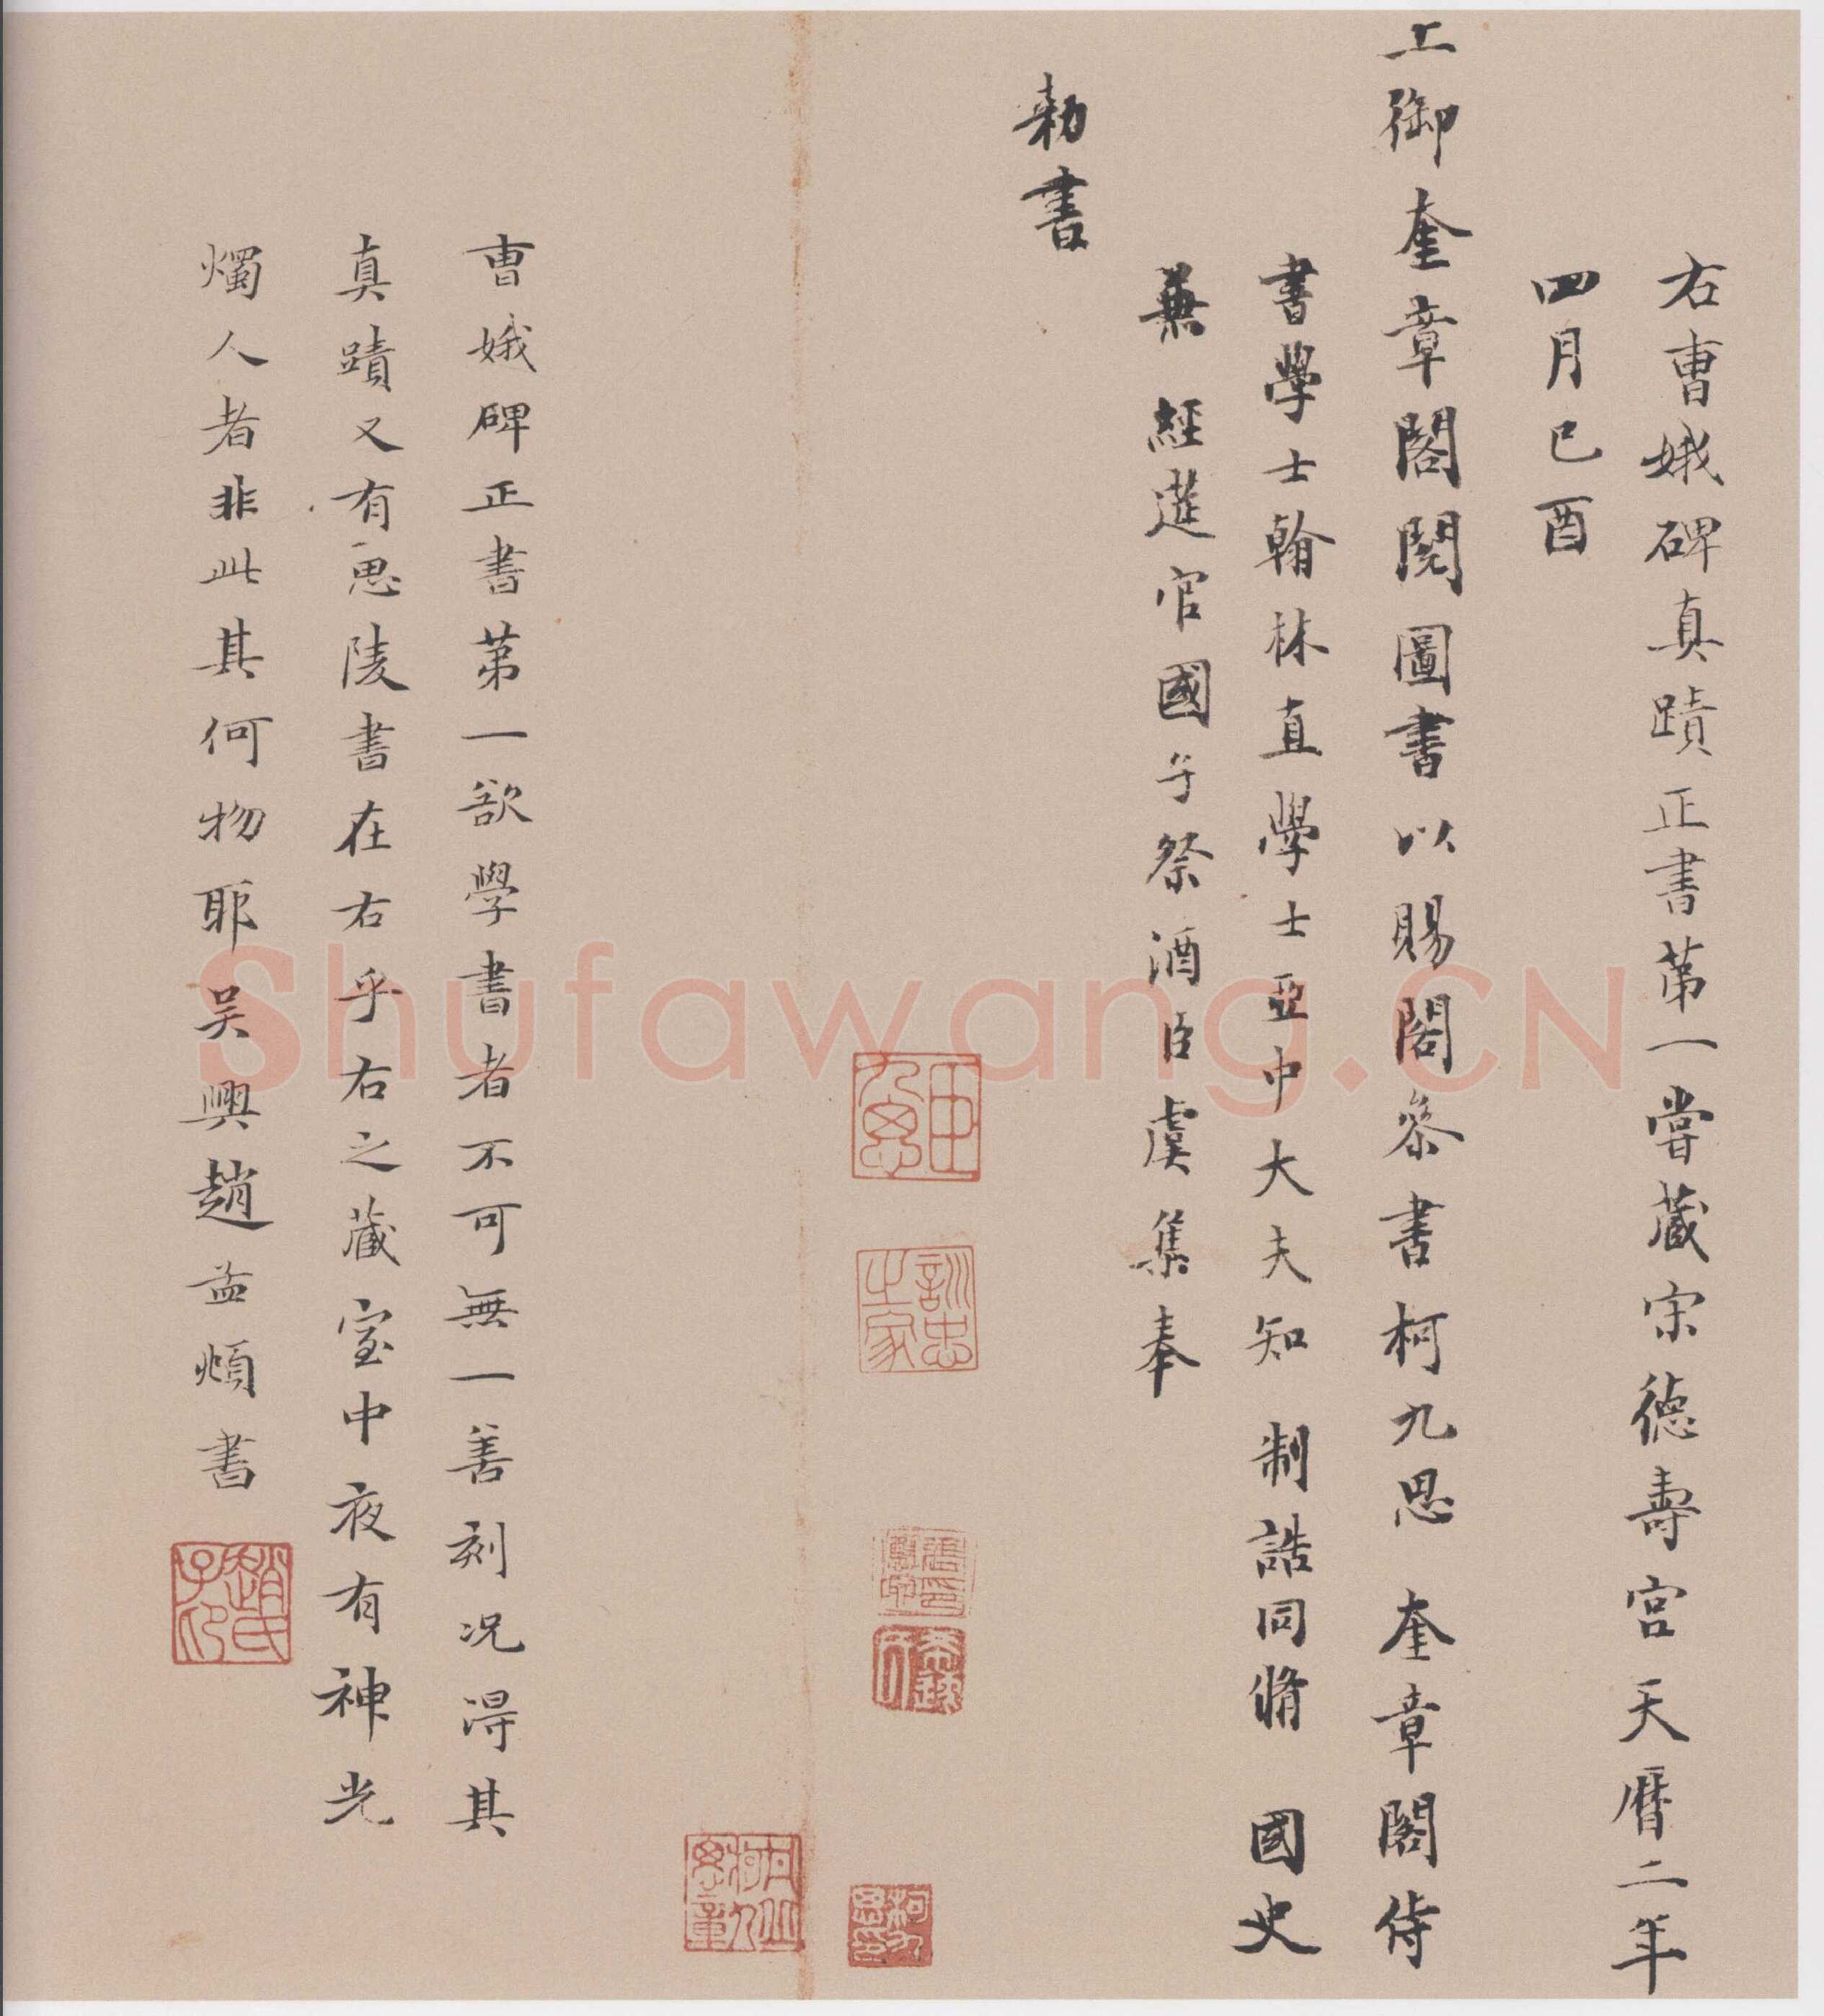 右曹娥碑真蹟正書第一嘗藏宋德壽宮天曆二年
四月己酉
上御奎章閣閱圖書以賜閣叅書柯九思 奎章閣侍
書學士翰林直學士亞中大夫知 制誥同脩 國史
兼 經筵官國子祭酒臣虞集奉
勑書
訓忠之家
柯九思印
曹娥碑正書第一欲學書者不可無一善刻况淂其
真蹟又有思陵書在右乎右之藏室中夜有神光
燭人者非此其何物耶吴興趙孟頫書
趙氏子印
Shufawang.CN